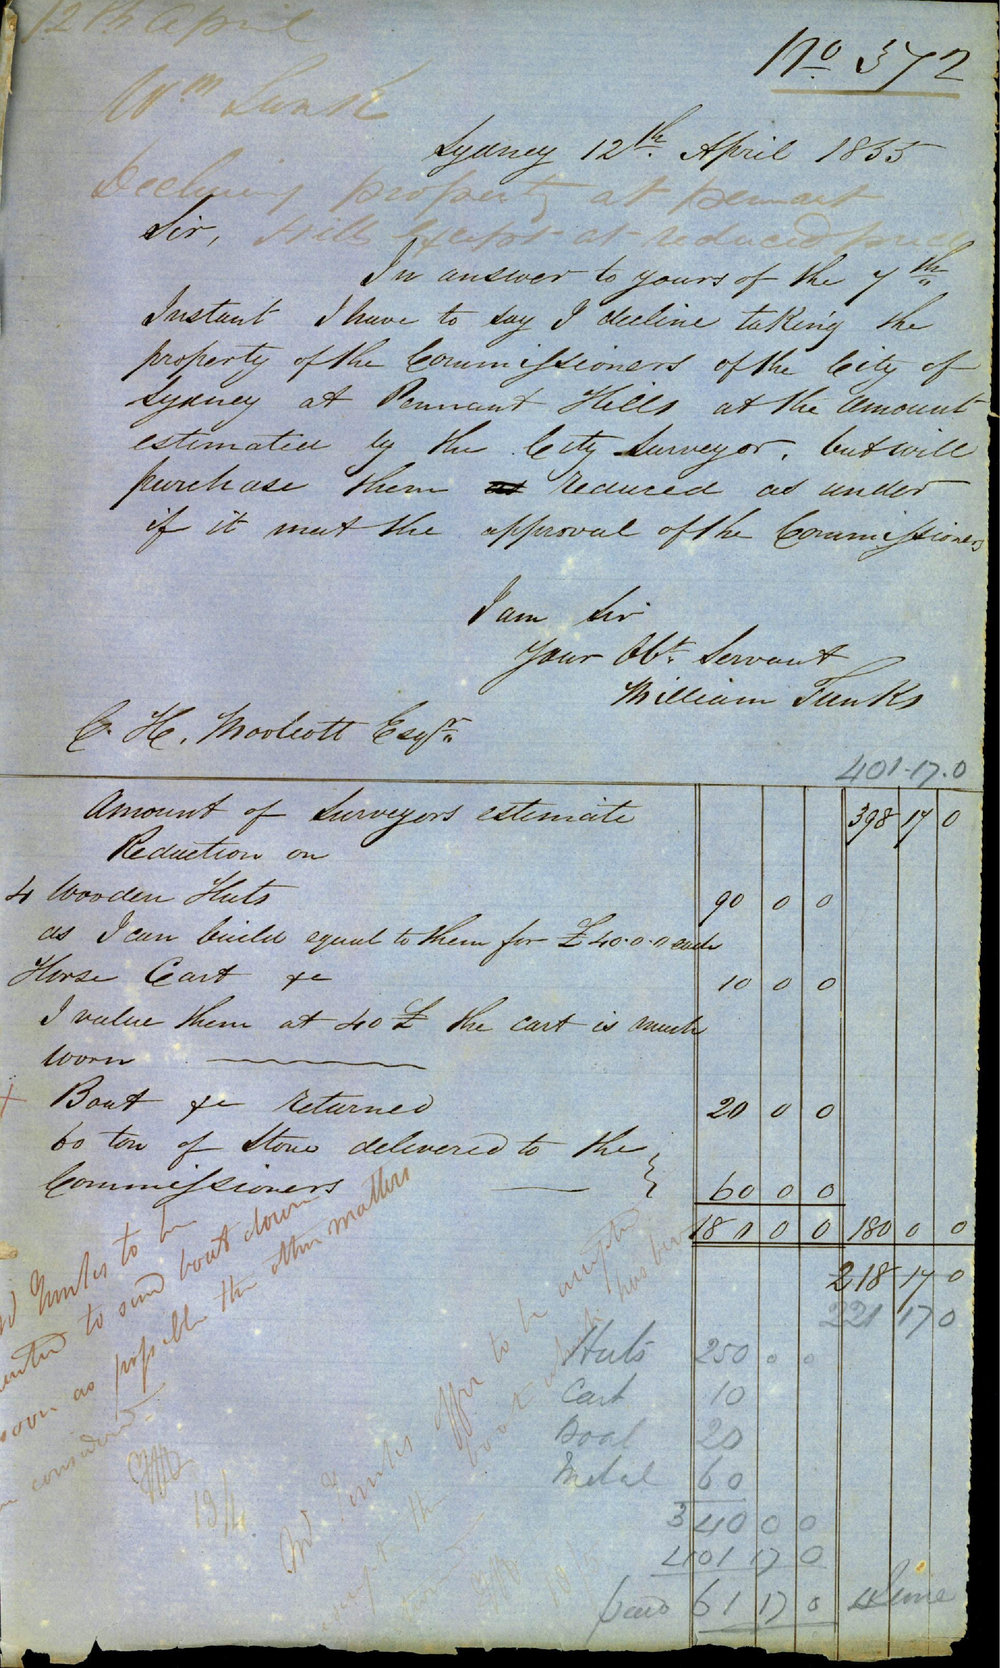 12th April
No 372
Wm Tunks
Sydney 12th April 1855
Declining property at Pennant
Hills except at reduced price
Sir,
In answer to yours of the 7th
Instant I have to say I decline taking the
property of the Commissioners of the City of
Sydney at Pennant Hills at the amount
estimated by the City Surveyor, but will
purchase them reduced as under
if it meet the approval of the Commissioners
I am Sir
Your Obt. Servant
William Tunks
C. H. Woolcott Esqr.
401.17.0
Amount of Surveyors estimate 398 17 0
Reduction on
4 Wooden Huts 90 0 0
as I can build equal to them for £40.0.0 each
Horse Cart &c 10 0 0
I value them at 40£ the cart is much
worn
X Boat &c returned 20 0 0
60 ton of Stone delivered to the
Commissioners 60 0 0
18 0 0 0 180 0 0
218 17 0
221 17 0
Mr Tunks to be
to send boat down
soon as possible the other matters
considered
19/4
Mr Tunks offer to be accepted
boat which has been
Huts 250 0 0
Cart 10
Boat 20
Metal 60
340 0 0
401 17 0
paid 61 17 0 4 June